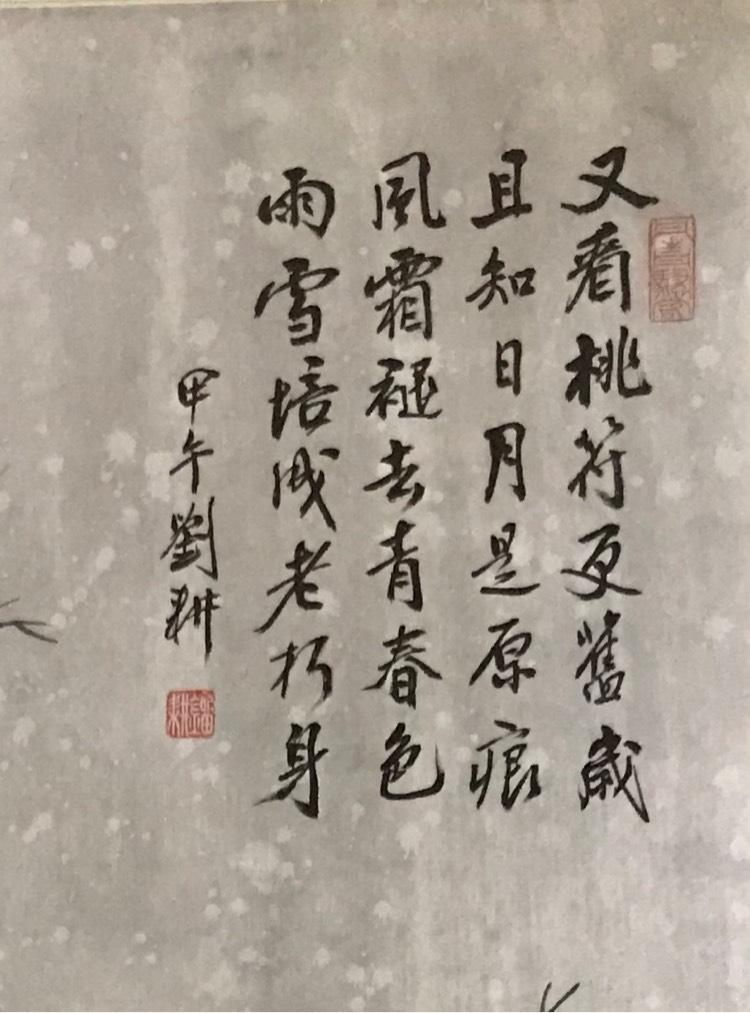 又看桃符更舊歲
且知日月是原痕
風霜褪去青春色
雨雪培成老朽身
甲午劉耕